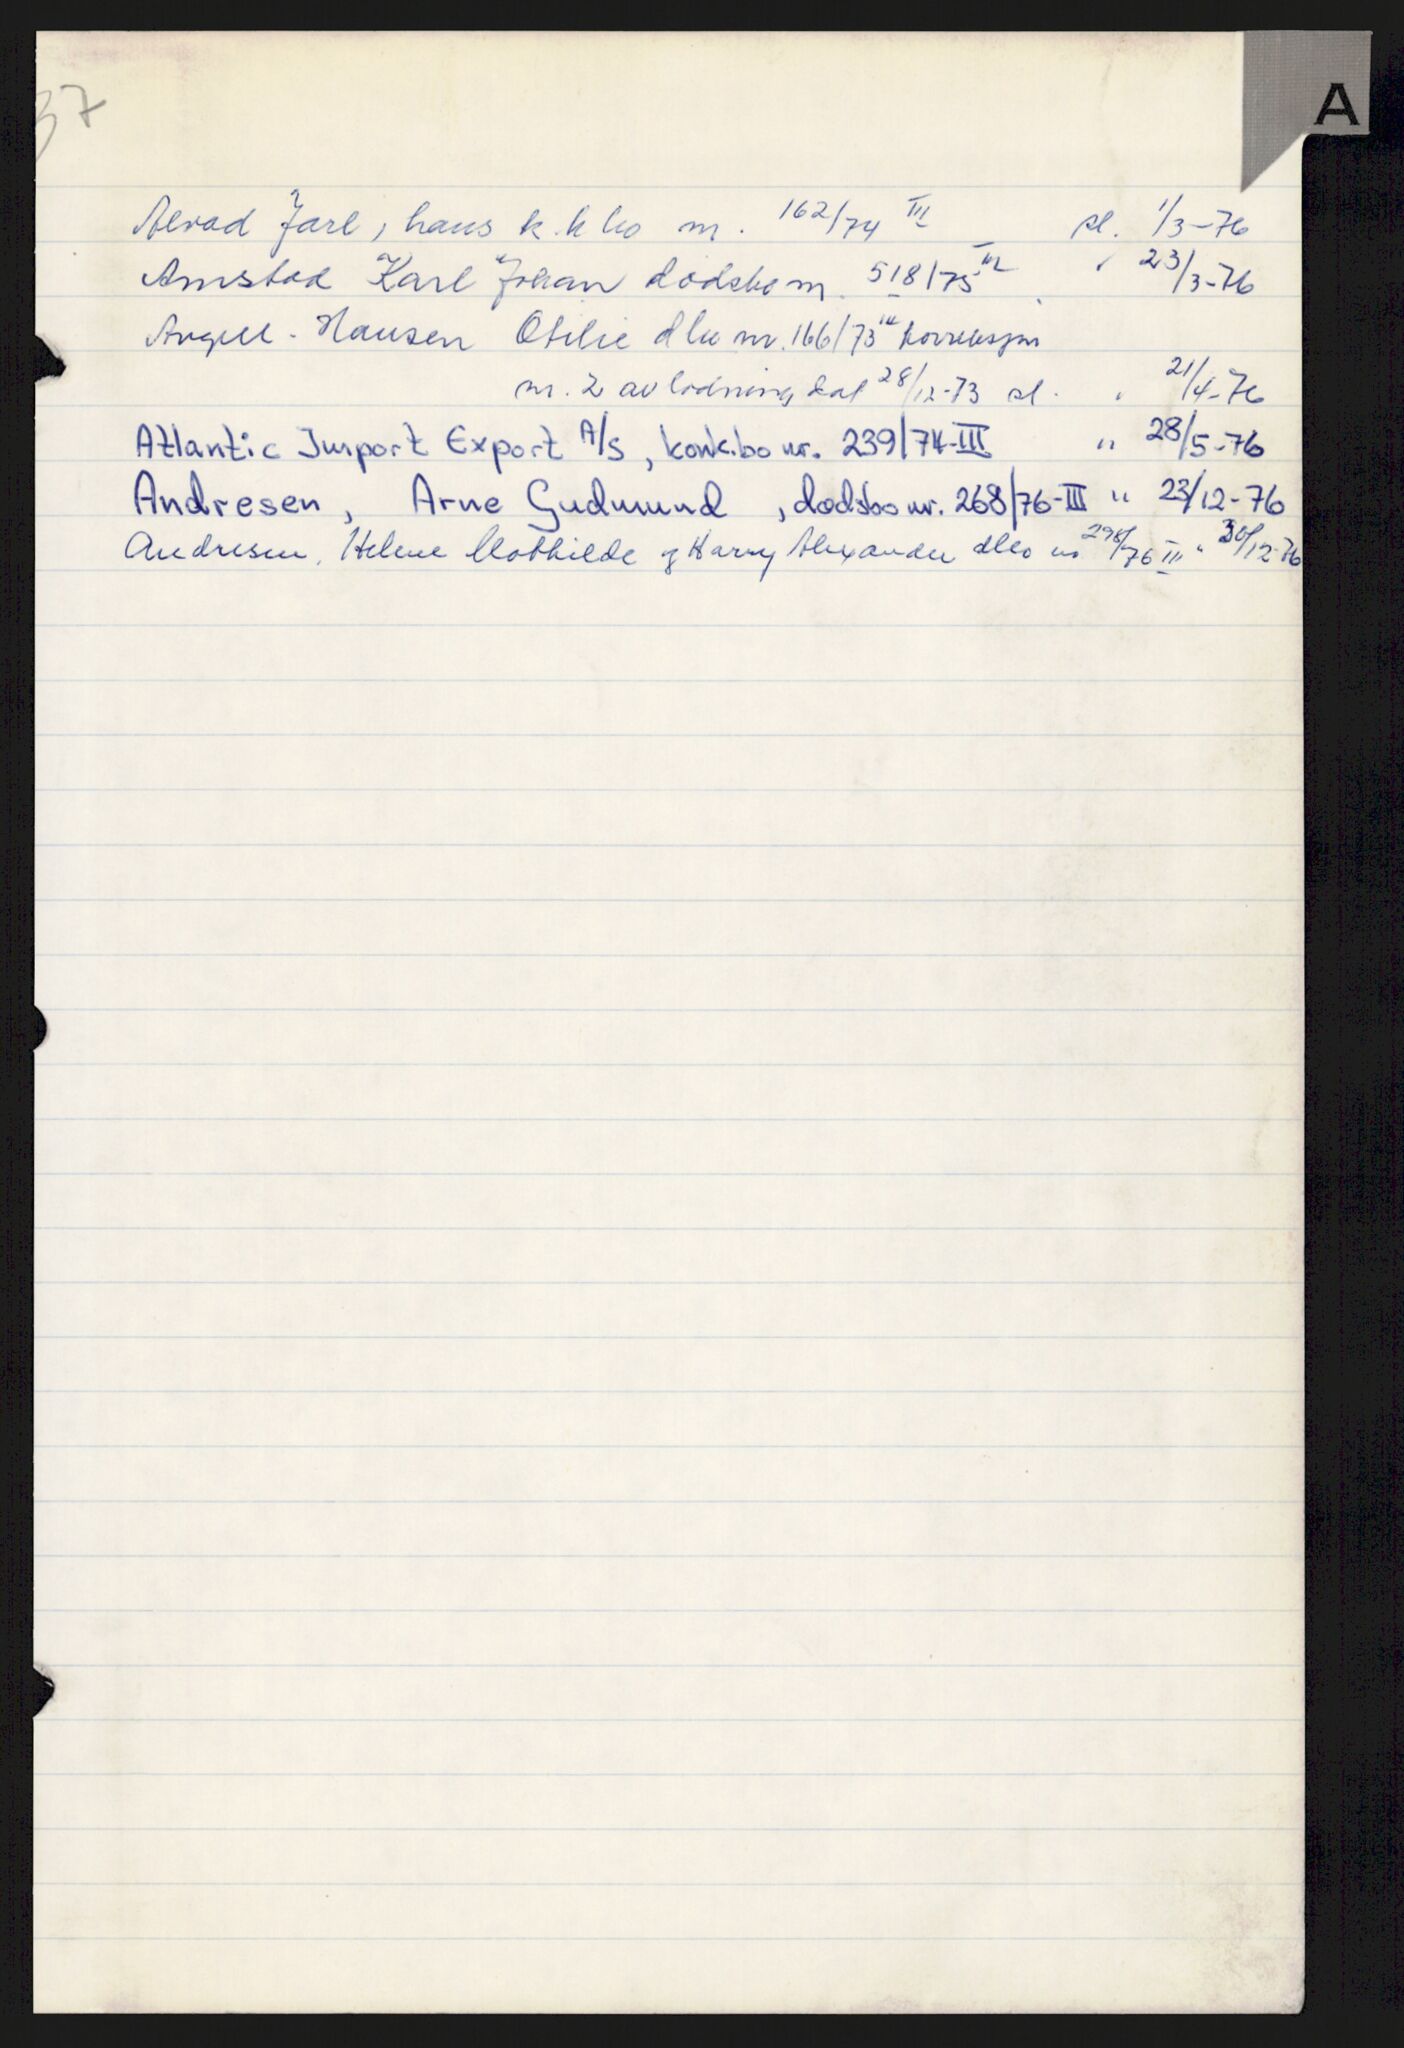 37
A
Jarl, hans k.k bo nr. 162/74 III sl. 1/3-76
Amstad Karl Johan dødsbo nr. 518/75 III " 23/3-76
Angell-Hansen Otilie dbo nr. 166/73 III korreksjon
nr. 2 av lodning dat 28/12-73 sl. " 21/4-76
Atlantic Import Export A/S, konk.bo nr. 239/74-III " 28/5-76
Andresen, Arne Gudmund, dødsbo nr. 268/76-III " 23/12-76
Andresen, Helene Mathilde og Harry Alexander dbo nr 298/76 III " 30/12-76